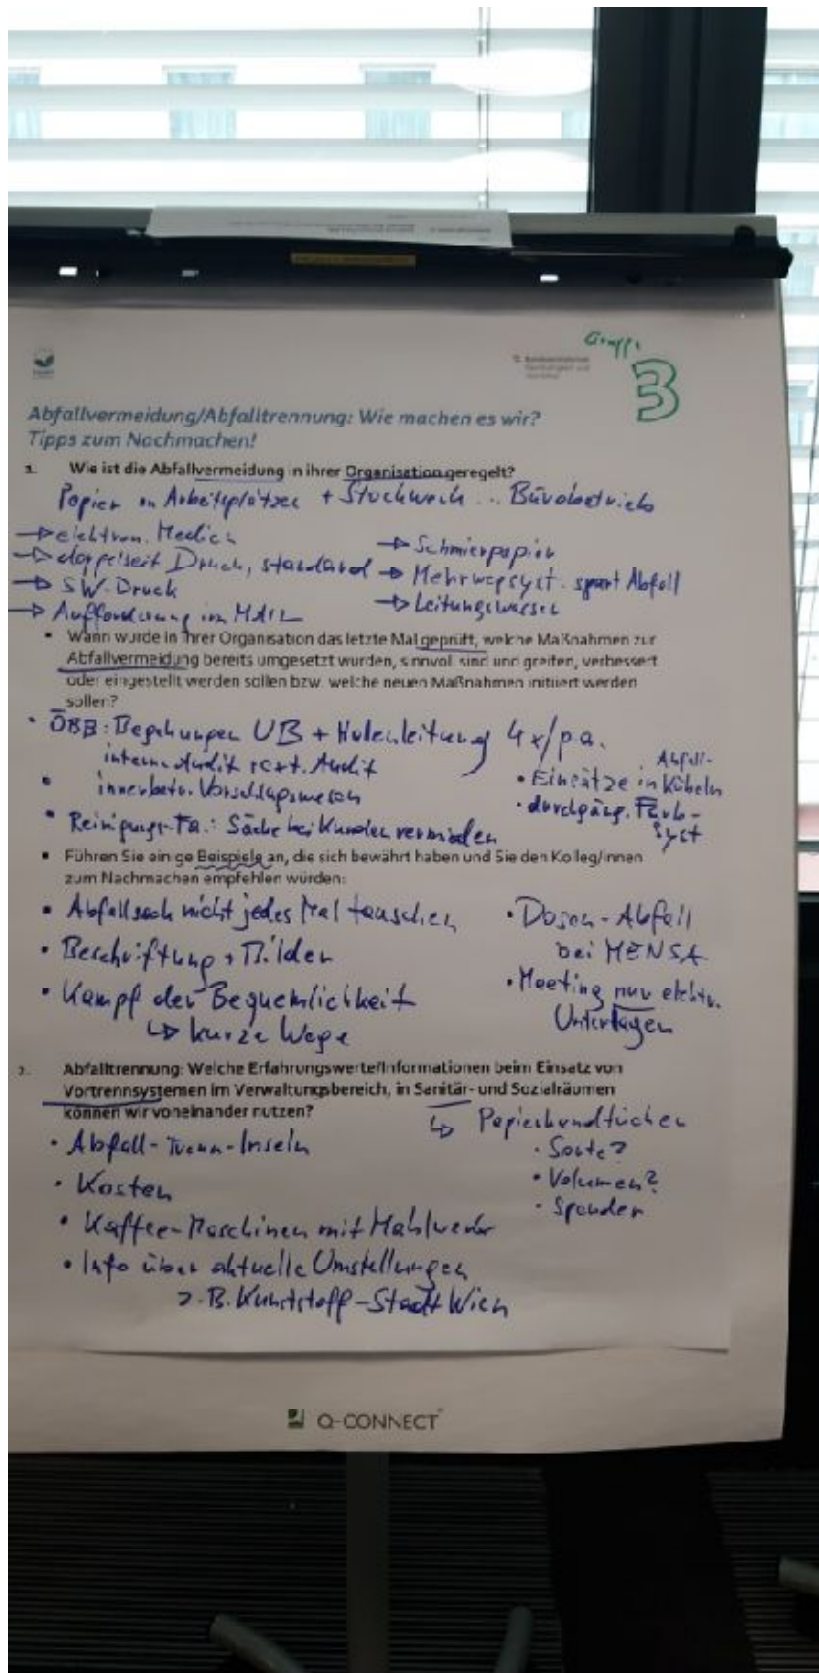 Gruppe
3
Abfallvermeidung/Abfalltrennung: Wie machen es wir?
Tipps zum Nachmachen!
1. Wie ist die Abfallvermeidung in ihrer Organisation geregelt?
Papier an Arbeitsplätzen + Stockwerk ... Bürobetrieb
→ elektron. Medien
→ doppelseit Druck, standard
→ SW-Druck
→ Aufforderung im MAIL
→ Schmierpapier
→ Mehrwegsyst. spart Abfall
→ Leitungswasser
▪ Wann wurde in Ihrer Organisation das letzte Mal geprüft, welche Maßnahmen zur
Abfallvermeidung bereits umgesetzt wurden, sinnvoll sind und greifen, verbessert
oder eingestellt werden sollen bzw. welche neuen Maßnahmen initiiert werden
sollen?
• ÖBB: Begehungen UB + Hallenleitung 4x/p.a.
intern. Audit + ext. Audit
• innerbetr. Vorschlagswesen
• Reinigungs-Fa.: Säcke bei Kunden vermeiden
• Einsätze in Abfall-Kübeln
• durchgäng. Farb-
syst
▪ Führen Sie einige Beispiele an, die sich bewährt haben und Sie den Kolleg/innen
zum Nachmachen empfehlen würden:
• Abfallsack nicht jedes Mal tauschen
• Beschriftung + Bilder
• Kampf der Bequemlichkeit
↳ kurze Wege
• Dosen-Abfall
bei MENSA
• Meeting nur elektr.
Unterlagen
2. Abfalltrennung: Welche Erfahrungswerte/Informationen beim Einsatz von
Vortrennsystemen im Verwaltungsbereich, in Sanitär- und Sozialräumen
können wir voneinander nutzen?
• Abfall-Trenn-Inseln
• Kosten
• Kaffee-Maschinen mit Mahlwerk
• Info über aktuelle Umstellungen
z.B. Kunststoff-Stadt Wien
↳ Papierhandtücher
• Sorte?
• Volumen?
• Spender
Q-CONNECT